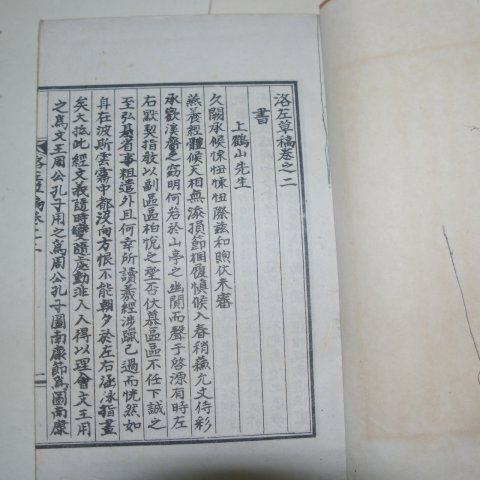 洛左草稿卷之二
書
上鶴山先生
久闕承候悚忸悚忸際玆和煦伏未審
燕養經體候天相無添損節梱履愼候入春稍蘇允文侍彩
承歡溪聲之窈明何若於山亭之幽閒而聲于啓源有時左
右默契指敎以副區區柏悅之望否伏慕區區不任下誠之
至弘基省事粗遣外且何幸所讀羲經涉躐已過而恍然如
身在波斯雲霧中都沒向方恨不能朝夕於左右涵泳指畫
矣大抵此經文義隨時變隨處動非人人得以理會文王用
之爲文王周公孔子用之爲周公孔子圖南康節爲圖南康
洛左草稿卷之二
一